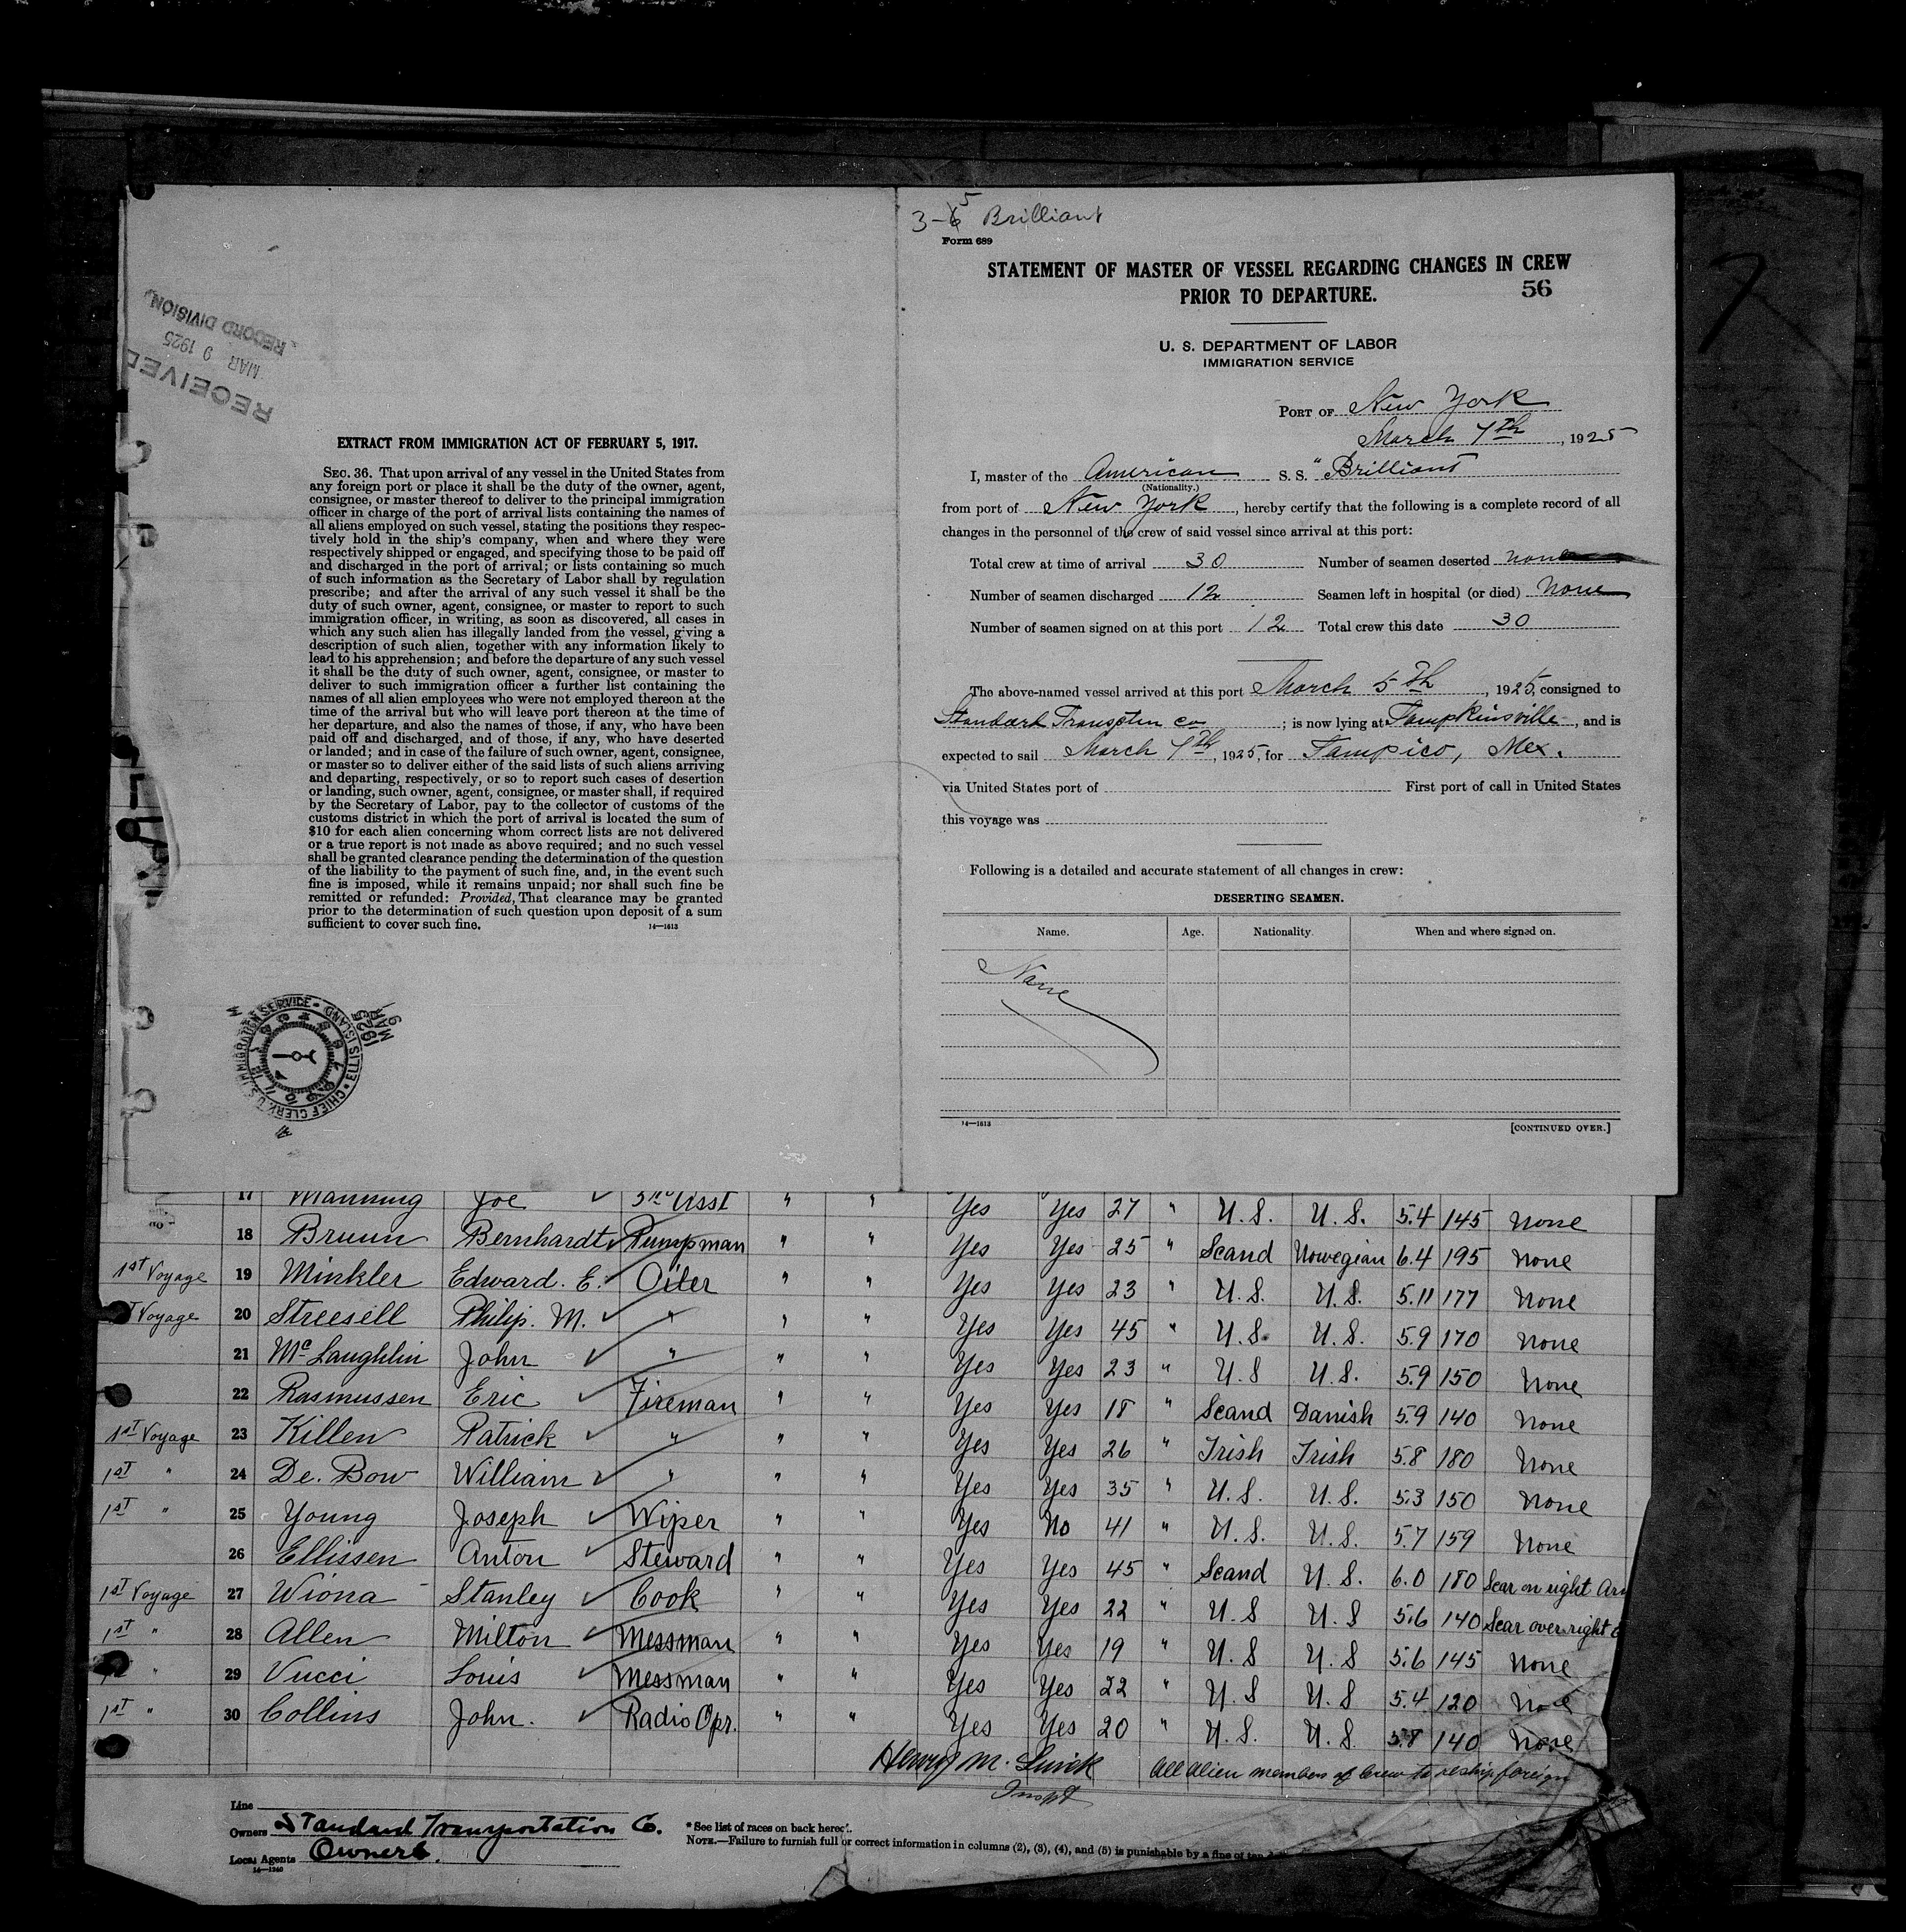 RECEIVED
MAR 9 1925
RECORD DIVISION
EXTRACT FROM IMMIGRATION ACT OF FEBRUARY 5, 1917.
SEC. 36. That upon arrival of any vessel in the United States from
any foreign port or place it shall be the duty of the owner, agent,
consignee, or master thereof to deliver to the principal immigration
officer in charge of the port of arrival lists containing the names of
all aliens employed on such vessel, stating the positions they respec-
tively hold in the ship's company, when and where they were
respectively shipped or engaged, and specifying those to be paid off
and discharged in the port of arrival; or lists containing so much
of such information as the Secretary of Labor shall by regulation
prescribe; and after the arrival of any such vessel it shall be the
duty of such owner, agent, consignee, or master to report to such
immigration officer, in writing, as soon as discovered, all cases in
which any such alien has illegally landed from the vessel, giving a
description of such alien, together with any information likely to
lead to his apprehension; and before the departure of any such vessel
it shall be the duty of such owner, agent, consignee, or master to
deliver to such immigration officer a further list containing the
names of all alien employees who were not employed thereon at the
time of the arrival but who will leave port thereon at the time of
her departure, and also the names of those, if any, who have been
paid off and discharged, and of those, if any, who have deserted
or landed; and in case of the failure of such owner, agent, consignee,
or master so to deliver either of the said lists of such aliens arriving
and departing, respectively, or so to report such cases of desertion
or landing, such owner, agent, consignee, or master shall, if required
by the Secretary of Labor, pay to the collector of customs of the
customs district in which the port of arrival is located the sum of
$10 for each alien concerning whom correct lists are not delivered
or a true report is not made as above required; and no such vessel
shall be granted clearance pending the determination of the question
of the liability to the payment of such fine, and, in the event such
fine is imposed, while it remains unpaid; nor shall such fine be
remitted or refunded: Provided, That clearance may be granted
prior to the determination of such question upon deposit of a sum
sufficient to cover such fine.
14—1613
CHIEF CLERK U.S. IMMIGRATION SERVICE • ELLIS ISLAND
1925 MAR 9
3-5 Brilliant
Form 689
STATEMENT OF MASTER OF VESSEL REGARDING CHANGES IN CREW
PRIOR TO DEPARTURE.
56
U. S. DEPARTMENT OF LABOR
IMMIGRATION SERVICE
PORT OF New York
March 7th, 1925
I, master of the American S. S. "Brilliant
(Nationality.)
from port of New York, hereby certify that the following is a complete record of all
changes in the personnel of the crew of said vessel since arrival at this port:
Total crew at time of arrival 30 Number of seamen deserted none
Number of seamen discharged 12 Seamen left in hospital (or died) None
Number of seamen signed on at this port 12 Total crew this date 30
The above-named vessel arrived at this port March 5th, 1925, consigned to
Standard Transptn co; is now lying at Tompkinsville, and is
expected to sail March 7th, 1925, for Tampico, Mex.
via United States port of First port of call in United States
this voyage was
Following is a detailed and accurate statement of all changes in crew:
DESERTING SEAMEN.
Name. Age. Nationality. When and where signed on.
None
14—1613 [CONTINUED OVER.]
17 Manning Joe 3rd Asst " " Yes Yes 27 " U.S. U.S. 5.4 145 None
18 Bruun Bernhardt Pumpman " " Yes Yes 25 " Scand Norwegian 6.4 195 None
1st Voyage 19 Minkler Edward. E. Oiler " " Yes Yes 23 " U.S. U.S. 5.11 177 None
Voyage 20 Streesell Philip. M. " " " Yes Yes 45 " U.S. U.S. 5.9 170 None
21 McLaughlin John " " " Yes Yes 23 " U.S U.S. 5.9 150 None
22 Rasmussen Eric Fireman " " Yes Yes 18 " Scand Danish 5.9 140 None
1st Voyage 23 Killen Patrick " " " Yes Yes 26 " Irish Irish 5.8 180 None
1st " 24 De. Bow William " " " Yes Yes 35 " U.S. U.S. 5.3 150 None
1st " 25 Young Joseph Wiper " " Yes No 41 " U.S. U.S. 5.7 159 None
26 Ellissen Anton Steward " " Yes Yes 45 " Scand U.S. 6.0 180 Scar on right Arm
1st Voyage 27 Wiona Stanley Cook " " Yes Yes 22 " U.S U.S 5.6 140 Scar over right E
1st " 28 Allen Milton Messman " " Yes Yes 19 " U.S U.S 5.6 145 None
" 29 Vucci Louis Messman " " Yes Yes 22 " U.S U.S 5.4 120 None
1st " 30 Collins John. Radio Opr. " " Yes Yes 20 " U.S. U.S 5.8 140 None
Henry M. All alien members of crew to reship foreign
Inspt
Line
Owners Standard Transportation Co.
Local Agents Owners.
14—1240
* See list of races on back hereof.
NOTE.—Failure to furnish full or correct information in columns (2), (3), (4), and (5) is punishable by a fine of ten